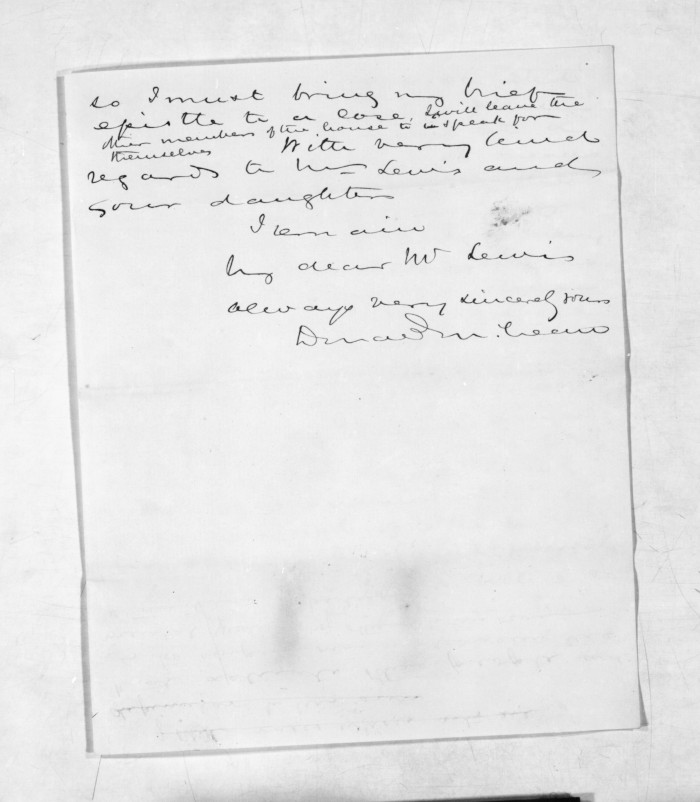 so I must bring my brief
epistle to a close, I will leave the
other members of the house to speak for
themselves With very kind
regards to Mrs Lewis and
your daughters
I remain
My dear Mr Lewis
always very sincerely yours
Donald McLean